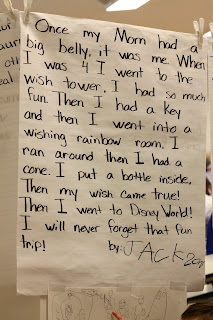 Once my Mom had a
big belly, it was me. When
I was 4 I went to the
wish tower. I had so much
fun. Then I had a key
and then I went into a
wishing rainbow room. I
ran around then I had a
cone. I put a bottle inside.
Then my wish came true!
Then I went to Disney World!
I will never forget that fun
trip! by: JACK